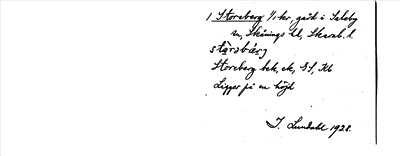 1 Storeberg 1/1 kr, gård i Saleby
sn, Skånings hd, Skarab. l.
stɷ̀rəbárj
Storeberg bek, ek, GS, Kb
Ligger på en höjd
I. Lundahl 1928.